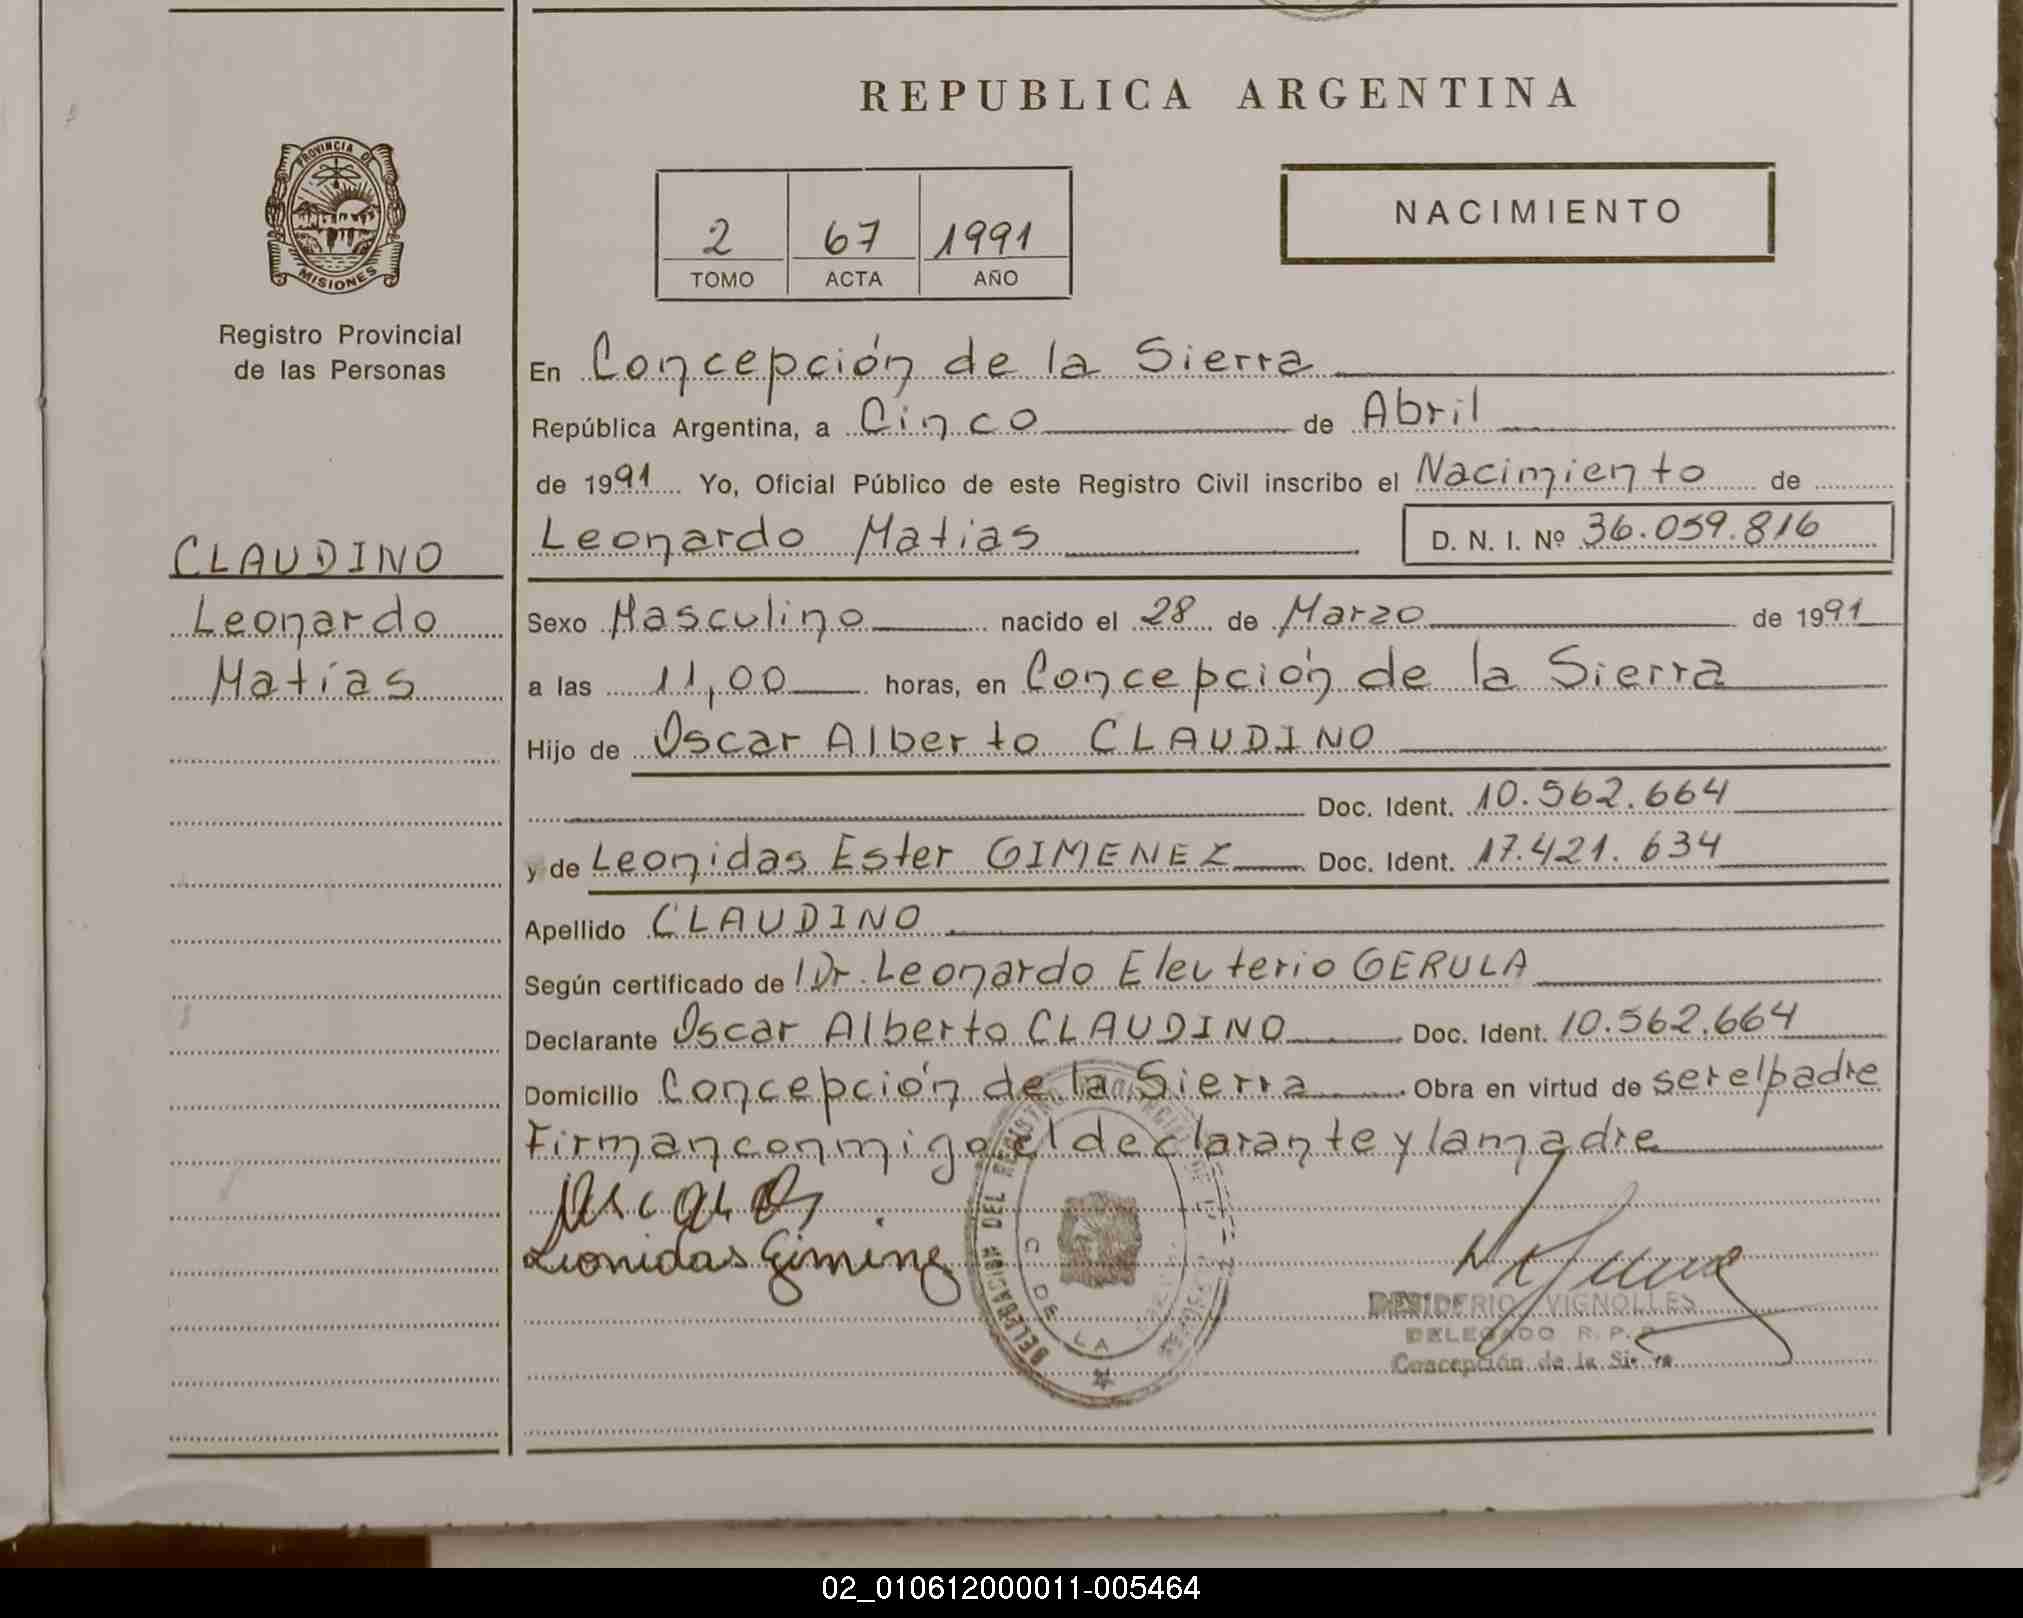 REPUBLICA ARGENTINA
PROVINCIA DE
MISIONES
Registro Provincial
de las Personas
2 67 1991
TOMO ACTA AÑO
NACIMIENTO
CLAUDINO
Leonardo
Matías
En Concepción de la Sierra
República Argentina, a Cinco de Abril
de 1991 Yo, Oficial Público de este Registro Civil inscribo el Nacimiento de
Leonardo Matias D. N. I. Nº 36.059.816
Sexo Masculino nacido el 28 de Marzo de 1991
a las 11,00 horas, en Concepción de la Sierra
Hijo de Oscar Alberto CLAUDINO
Doc. Ident. 10.562.664
y de Leonidas Ester GIMENEZ Doc. Ident. 17.421.634
Apellido CLAUDINO
Según certificado de Dr. Leonardo Eleuterio GERULA
Declarante Oscar Alberto CLAUDINO Doc. Ident. 10.562.664
Domicilio Concepción de la Sierra Obra en virtud de ser el padre
Firman conmigo el declarante y la madre
Leonidas Gimenez
DELEGACION DEL REGISTRO
DE LA
DESIDERIO VIGNOLLES
DELEGADO R. P. P.
Concepción de la Sierra
02_010612000011-005464